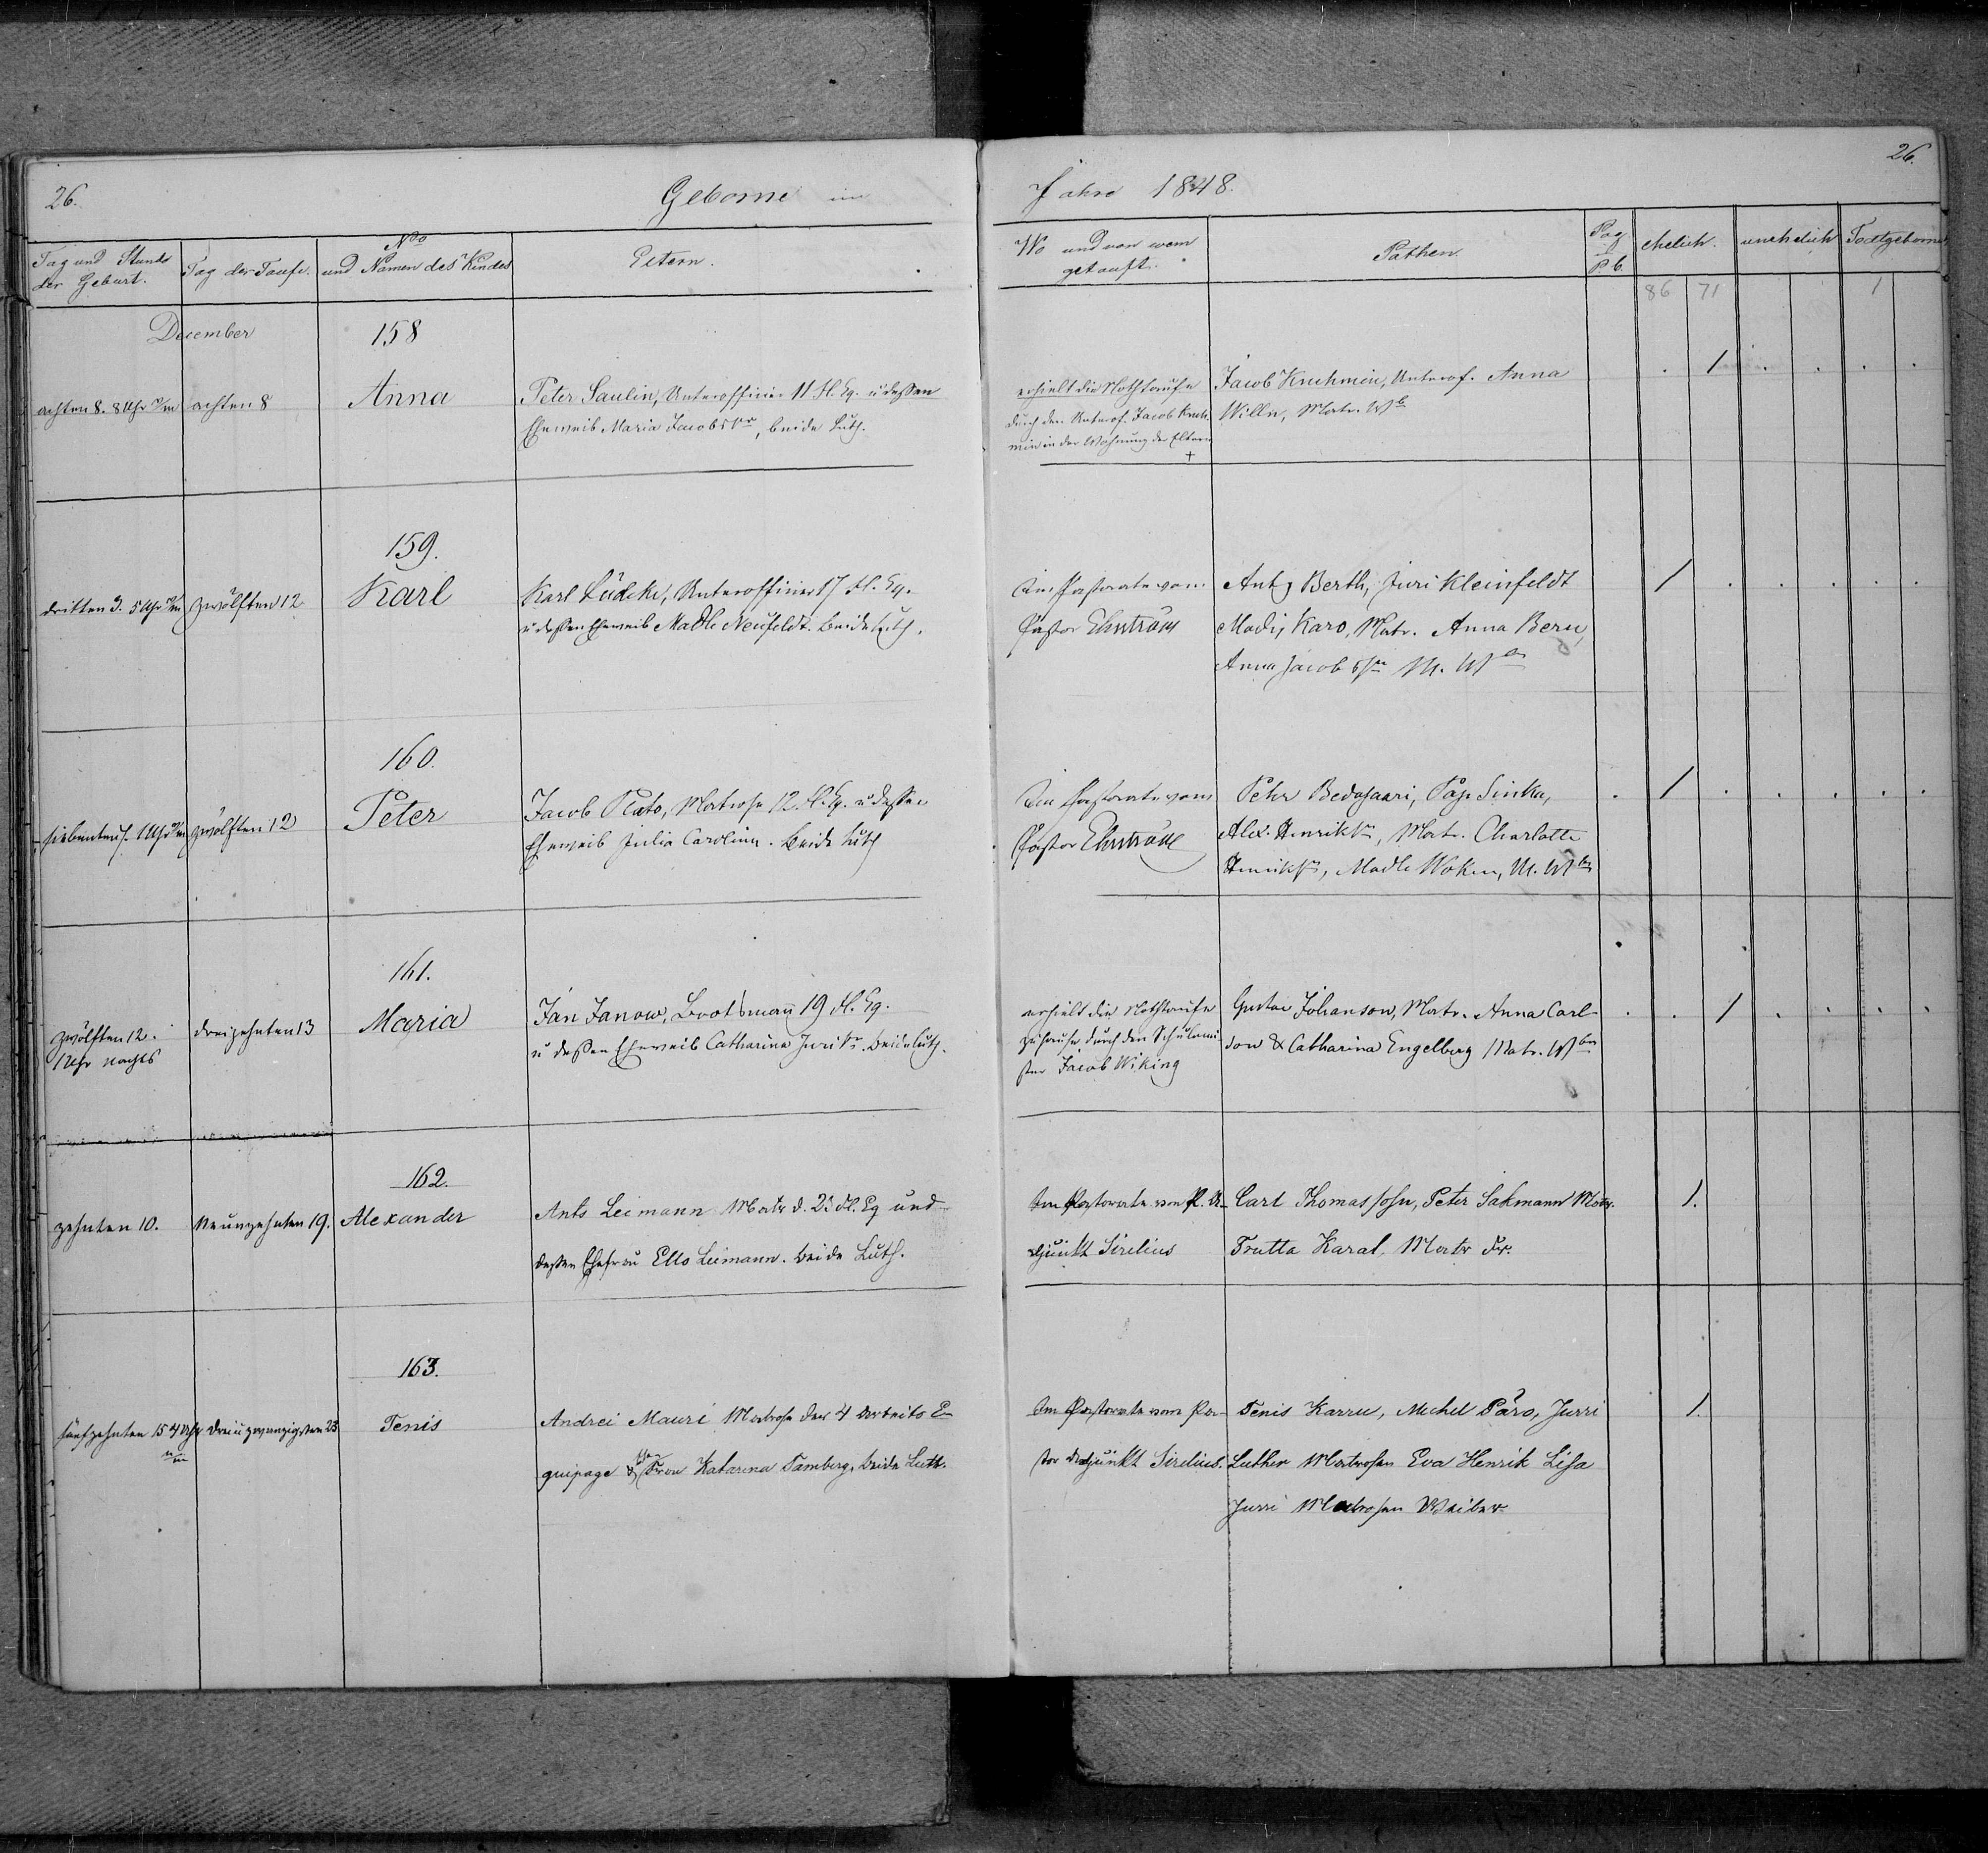 26.
Geborne im
Jahre 1848.
26.
Tag und Stunde
der Geburt.
Tag der Taufe.
No
und Namen des Kindes
Eltern.
Wo und von wem
getauft.
Pathen.
Pag
P. b.
ehelich.
unehelich
Todtgeborne
86 71 1
December
158
achten 8. 8 Uhr
achten 8
Anna
Peter Saulin, Unteroffizier 11 Fl. Eq. u dessen
Eheweib Maria Jacobs, beide Luth.
erhielt die Nothtaufe
durch den Unterof. Jacob Kruh-
min in der Wohnung der Eltern
+
Jacob Kruhmin, Unterof. Anna
Willn, Matr. Wb
1
159.
dritten 3. 5 Uhr
zwölften 12
Karl
Karl Lüdeke, Unteroffizier 17 Fl. Eq.
u dessen Eheweib Madle Neufeldt. beide Luth.
Im Pastorate vom
Pastor Ehnström
Antz Berth, Juri Kleinfeldt
Madis Karo, Matr. Anna Beru,
Anna Jacobs M. Wbr
1
160.
siebenten 7. 1 Uhr
zwölften 12
Peter
Jacob Plato, Matrose 12 Fl. Eq. u dessen
Eheweib Julia Carolina. beide Luth
Im Pastorate vom
Pastor Ehnström
Alex. Henriks, Matr. Charlotte
Henriks, Madle Woken, M. Wbr
1
161.
zwölften 12.
1 Uhr nachts
dreizehnten 13
Maria
Jan Janow, Bootsmañ 19 Fl. Eq.
u dessen Eheweib Catharina Juri. beide Luth.
erhielt die Nothtaufe
zu Hause durch den Schulmei-
ster Jacob Wiking
Gustav Johanson, Matr. Anna Carl-
son & Catharina Engelberg Matr. Wbr
1
162.
zehnten 10.
Neunzehnten 19.
Alexander
Ants Leimann Matr d. 23 Fl. Eq und
dessen Ehefrau Ello Leimann. beide Luth.
Im Pastorate von P. A-
djunkt Sirelius
Carl Thomassohn, Peter Sakmann Matr.
Trutta Karal, Matr Fr.
1.
163.
fünfzehnten 15 4 Uhr
dreiundzwanzigsten 23
Tenis
Andrei Mauri Matrose der 4 Arbeits E-
quipage & Frau Katarina Tamberg, beide Luth.
Im Pastorate vom Pa-
stor Adjunkt Sirelius.
Tenis Karru, Michel Päro, Jurri
Luther Matrosen Eva Henrik Lisa
Jurri Matrosen Weiber
1.